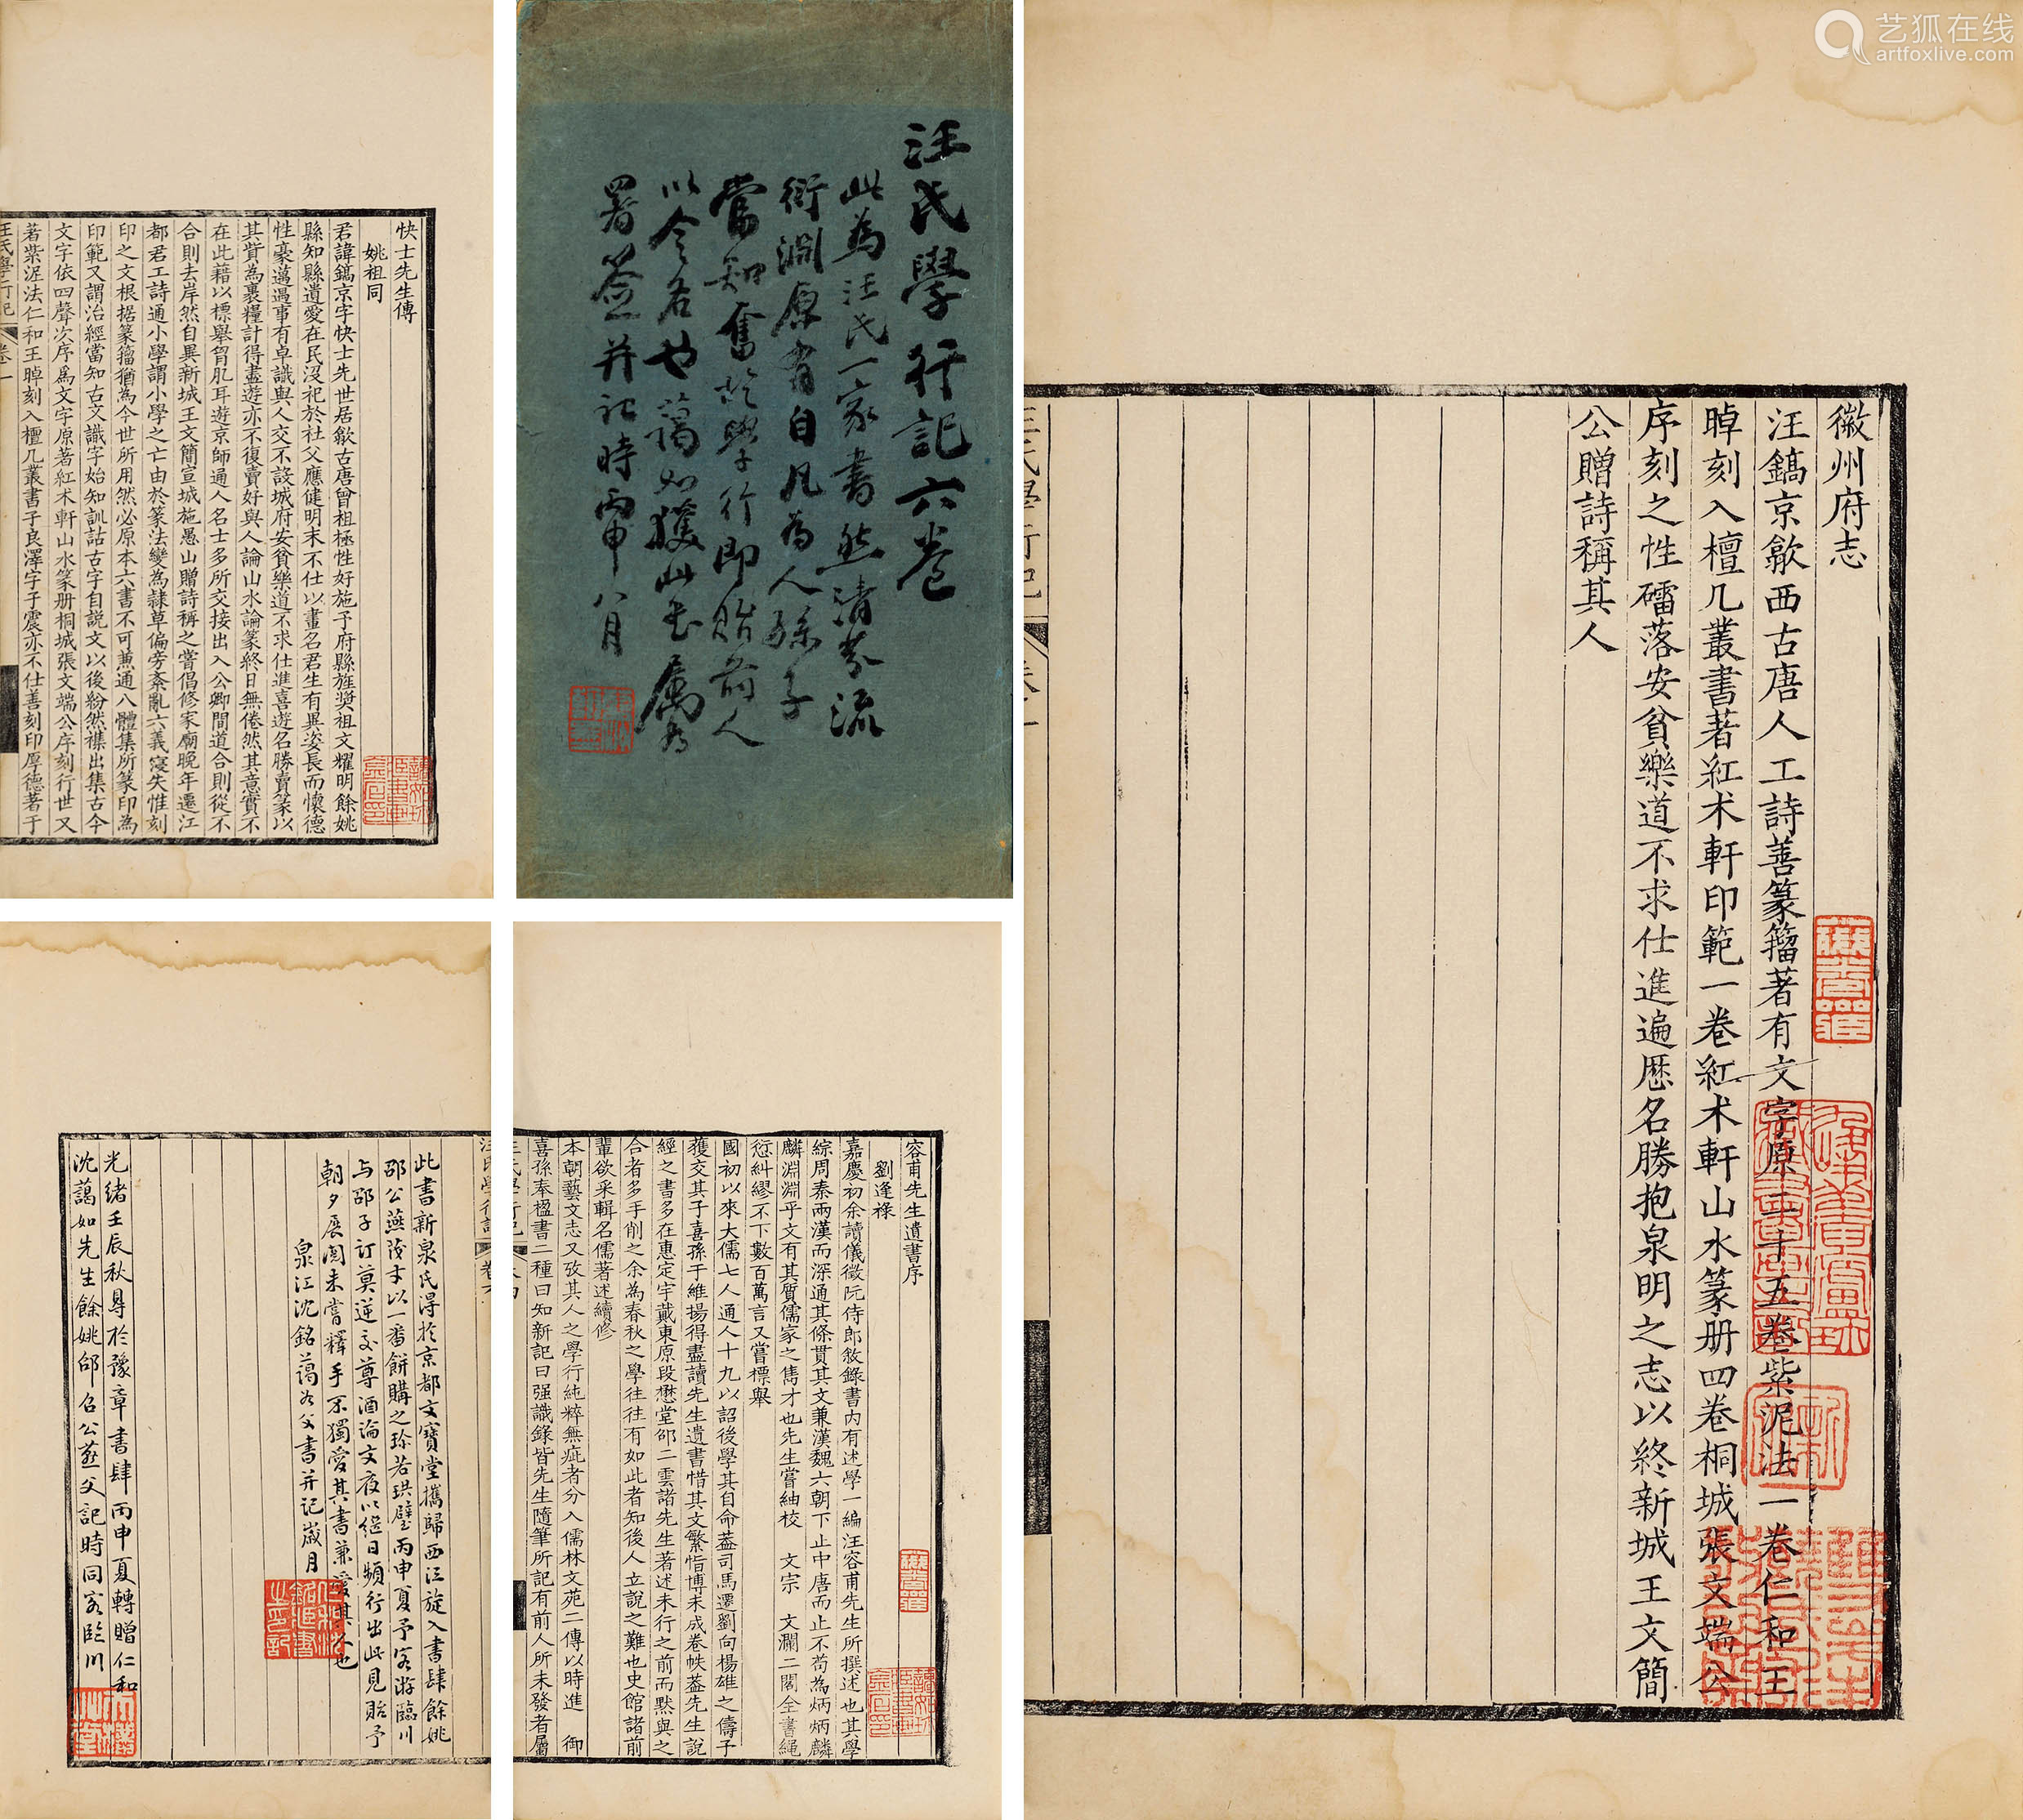 艺狐在线
artfoxlive.com
徽州府志
汪鎬京歙西古唐人工詩善篆籀著有文字原二十五卷紫泥法一卷仁和王
晫刻入檀几叢書著紅朮軒印範一卷紅朮軒山水篆册四卷桐城張文端公
序刻之性礌落安貧樂道不求仕進遍歷名勝抱泉明之志以終新城王文簡
公贈詩稱其人
汪氏學行記六卷
此為汪氏一家書然清芬流
衍淵原有自凡為人孫子
當知奮於學行即貽前人
以令名也藹如獲此書屬為
署簽并記時丙申八月
快士先生傳
姚祖同
君諱鎬京字快士先世居歙古唐曾祖極性好施予府縣旌獎祖文耀明餘姚
縣知縣遺愛在民沒祀於社父應健明末不仕以畫名君生有異姿長而懷德
性豪邁遇事有卓識與人交不設城府安貧樂道不求仕進喜遊名勝賣篆以
其貲為裹糧計得盡遊亦不復賣好與人論山水論篆終日無倦然其意實不
在此藉以標舉胷肊耳遊京師通人名士多所交接出入公卿間道合則從不
合則去岸然自異新城王文簡宣城施愚山贈詩稱之嘗倡修家廟晚年遷江
都君工詩通小學謂小學之亡由於篆法變為隸草偏旁紊亂六義寖失惟刻
印之文根据篆籀猶為今世所用然必原本六書不可蕉通八體集所篆印為
印範又謂治經當知古文識字始知訓詁古字自說文以後紛然襍出集古今
文字依四聲次序為文字原著紅朮軒山水篆册桐城張文端公序刻行世又
著紫泥法仁和王晫刻入檀几叢書子良澤字子震亦不仕善刻印厚德著于
汪氏學行記 卷一
容甫先生遺書序
劉逢祿
嘉慶初余讀儀徵阮侍郎敘錄書內有述學一編汪容甫先生所撰述也其學
綜周秦兩漢而深通其條貫其文兼漢魏六朝下止中唐而止不苟為炳炳麟
麟淵淵乎文有其質儒家之雋才也先生嘗紬校 文宗 文瀾二閣全書繩
愆糾繆不下數百萬言又嘗標舉
國初以來大儒七人通人十九以詔後學其自命葢司馬遷劉向楊雄之儔子
獲交其子喜孫于維揚得盡讀先生遺書惜其文繁恉博未成卷帙葢先生說
經之書多在惠定宇戴東原段懋堂邵二雲諸先生著述未行之前而黙與之
合者多手削之余為春秋之學往往有如此者知後人立說之難也史館諸前
輩欲采輯名儒著述續修
本朝藝文志又攷其人之學行純粹無疵者分入儒林文苑二傳以時進 御
喜孫奉楹書二種曰知新記曰强識錄皆先生隨筆所記有前人所未發者屬
此書新泉氏得於京都文寶堂攜歸西江旋入書肆餘姚
邵公燕茂才以一番餅購之珍若珙璧丙申夏予客游臨川
与邵子訂莫逆交尊酒論文夜以繼日頻行出此見貽予
朝夕展閱未嘗釋手不獨愛其書兼愛其人也
泉江沈銘藹如父書并記歲月
光緒壬辰秋得於豫章書肆丙申夏轉贈仁和
沈藹如先生餘姚邵召公燕父記時同客臨川